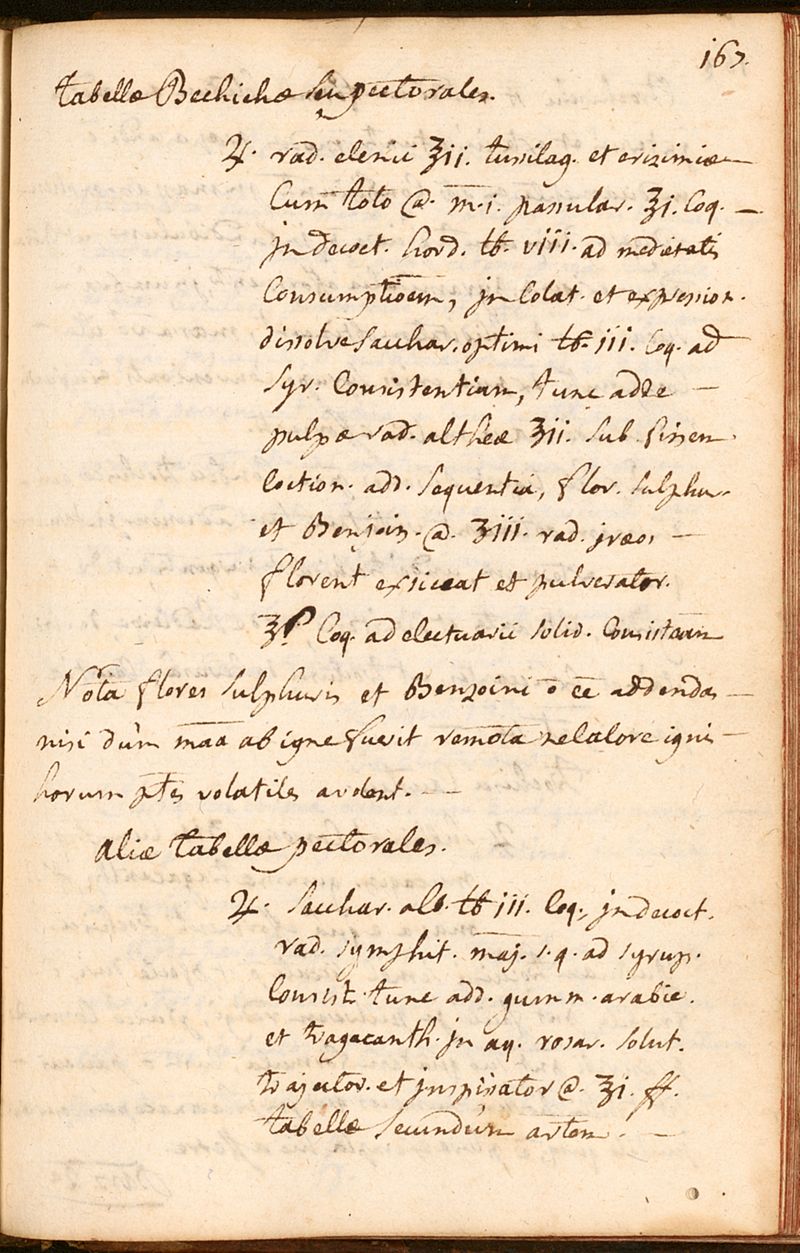 167.
tabellæ Bechichæ seu pectorales.
♃. rad. elenii ʒii. tussilag. et erizimiæ
Cum toto @. m̄. i. passular. ʒi. Coq. —
jn decoct. hord. ℔. viii. ad medietatis
Consumptioem, jn Colat. et expression.
dissolve Sacchar. optimi ℔. iii. Coq. ad
Syr. Consistentiam, tunc adde —
pulpæ rad. altheæ ʒii. sub finem
Coction. add. Sequentia, flor. sulphu.
et Benjoin. @. ʒiii. rad. jræos —
florent exsiccat et pulverator.
ʒß. Coq. ad electuarii solid. Consistam
Nota flores sulphuris et Benzoini ō ēē addendos —
nisi dum maā ab igne fuerit remota ne calore igni —
horum ptēs volatiles avolent. —
aliæ tabellæ pectorales.
♃. Sacchar. alb. ℔ iii. Coq. jn decoct.
rad. symphit. maj. s. q. ad syrup.
Consist. tunc add. gumm. arabic.
et tragacanth. jn aq. rosar. solut.
trajector. et jnspissator @. ʒi. ff.
tabellæ Secundum artem. —